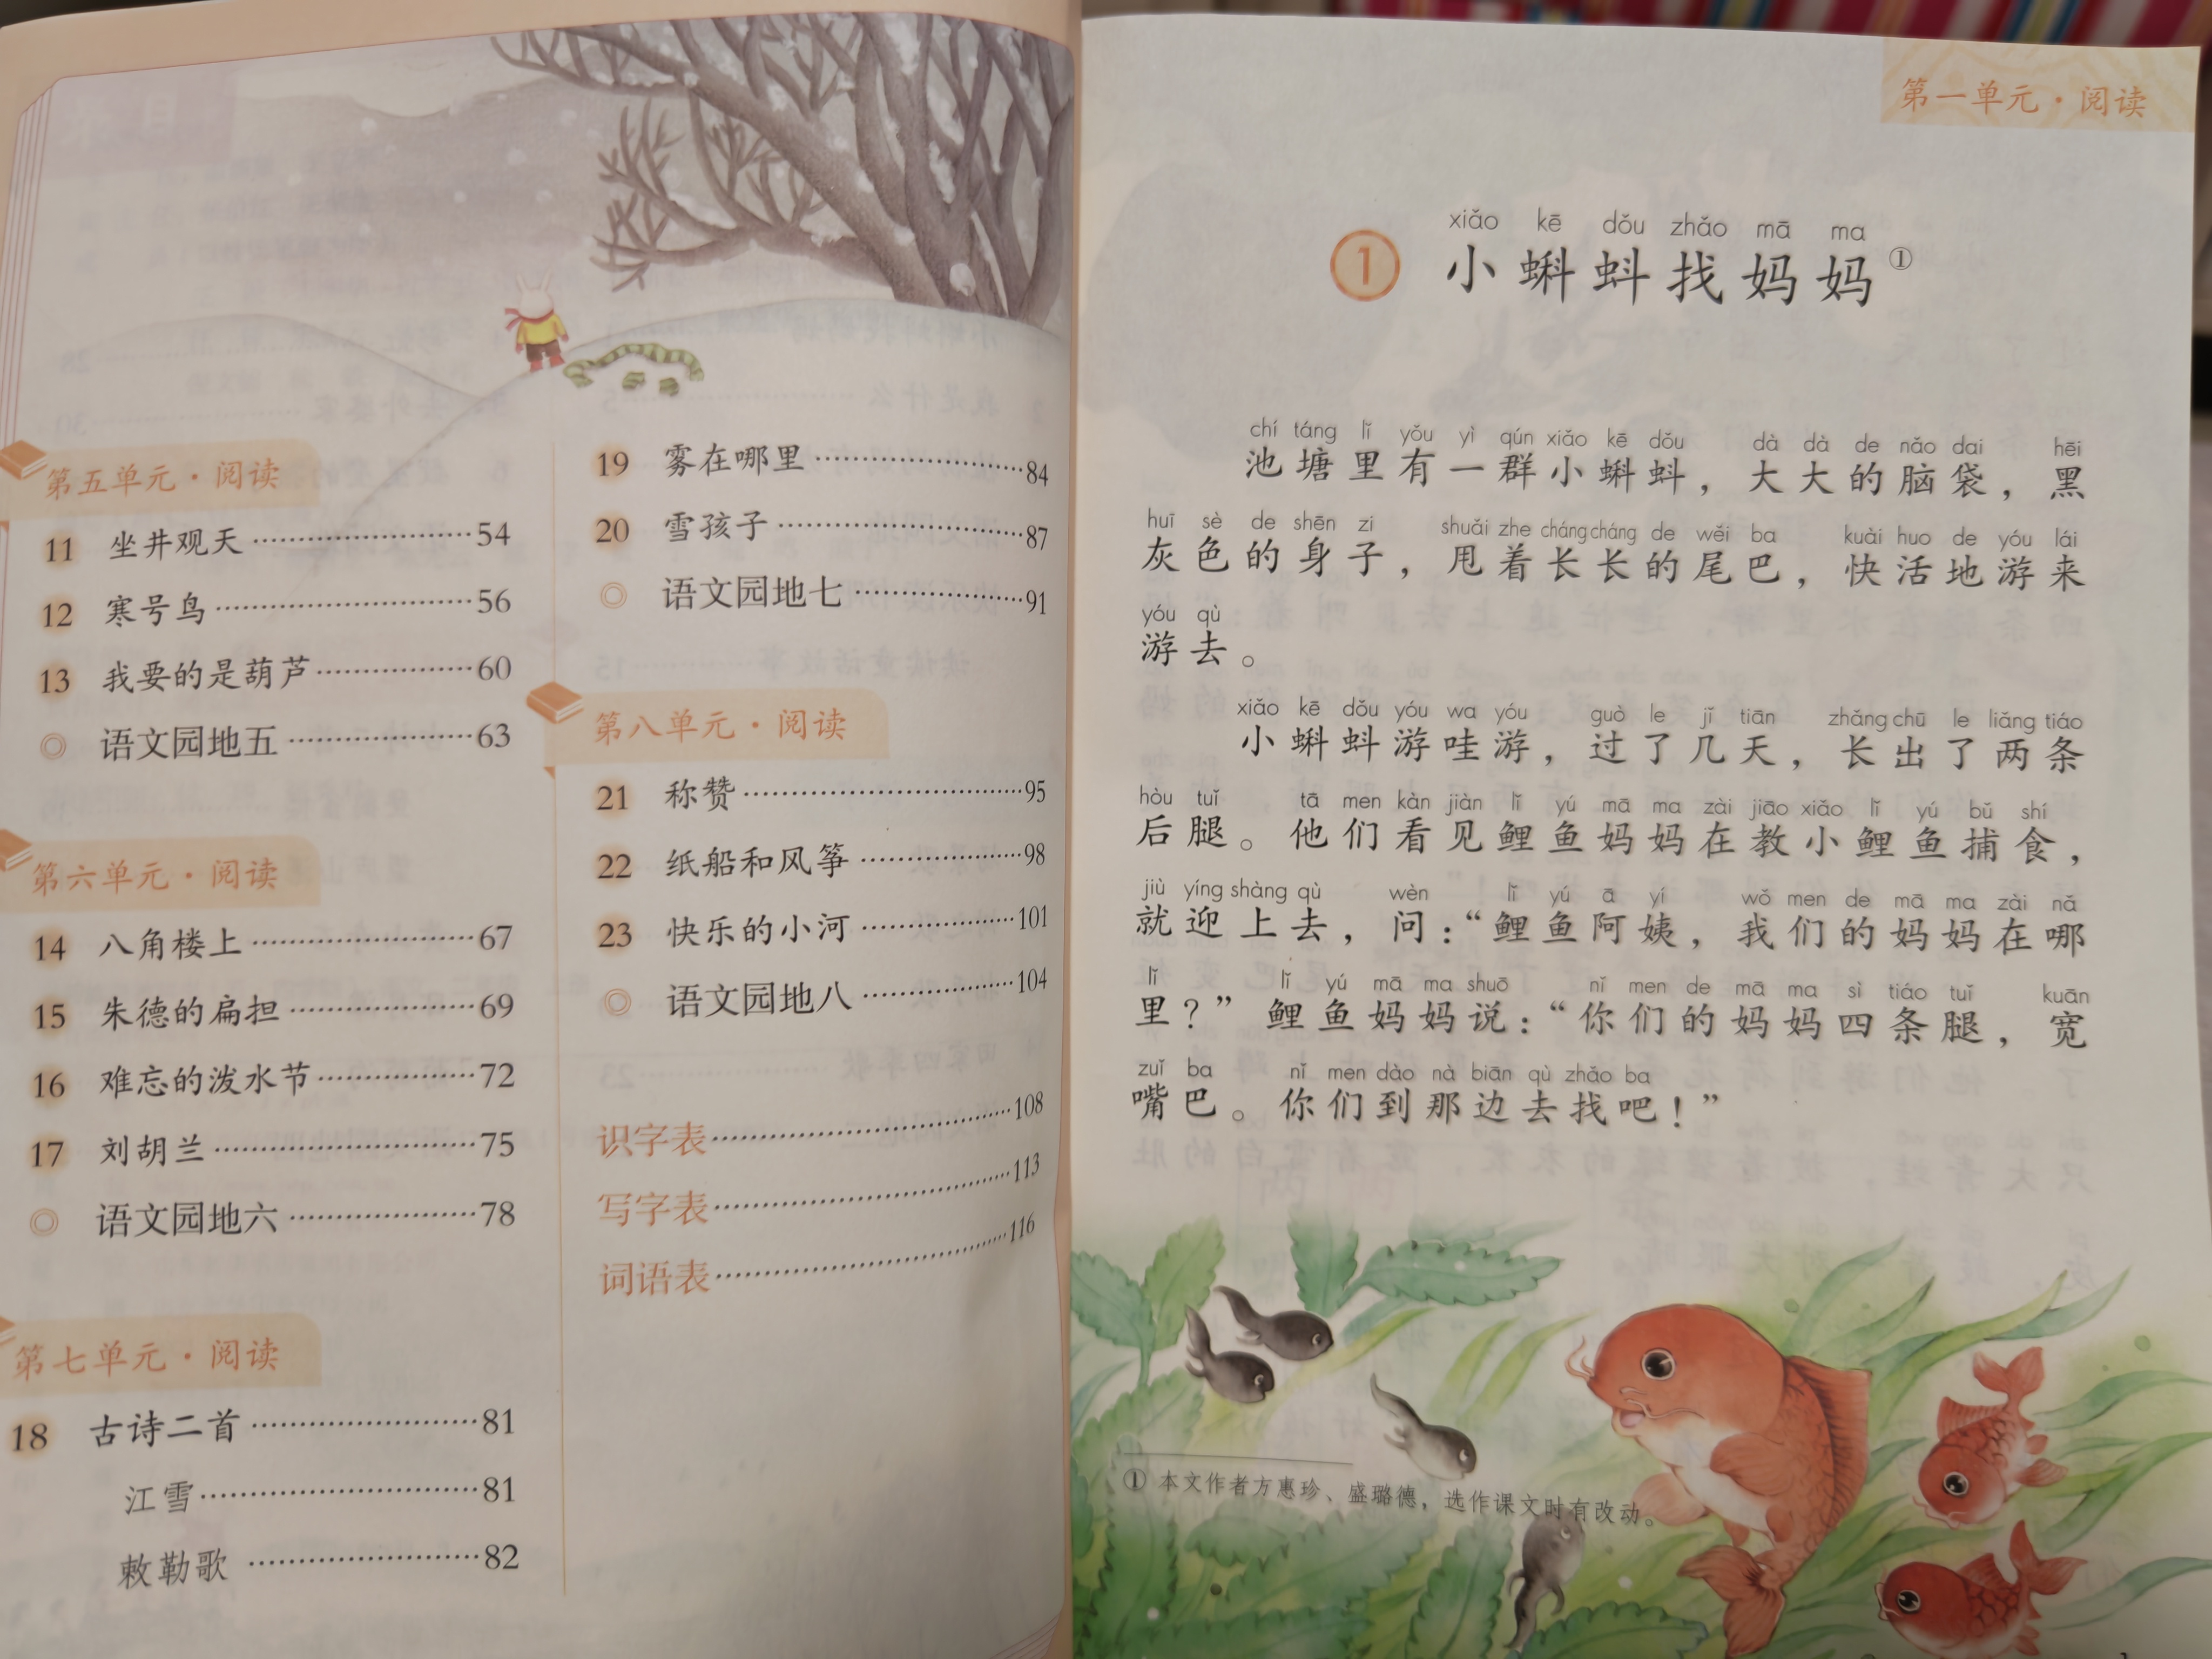 第五单元·阅读
11 坐井观天……54
12 寒号鸟……56
13 我要的是葫芦……60
◎ 语文园地五……63
第六单元·阅读
14 八角楼上……67
15 朱德的扁担……69
16 难忘的泼水节……72
17 刘胡兰……75
◎ 语文园地六……78
第七单元·阅读
18 古诗二首……81
江雪……81
敕勒歌……82
19 雾在哪里……84
20 雪孩子……87
◎ 语文园地七……91
第八单元·阅读
21 称赞……95
22 纸船和风筝……98
23 快乐的小河……101
◎ 语文园地八……104
识字表……108
写字表……113
词语表……116
第一单元·阅读
xiǎo kē dǒu zhǎo mā ma
1 小蝌蚪找妈妈①
chí táng lǐ yǒu yì qún xiǎo kē dǒu dà dà de nǎo dai hēi
池塘里有一群小蝌蚪，大大的脑袋，黑
huī sè de shēn zi shuǎi zhe cháng cháng de wěi ba kuài huo de yóu lái
灰色的身子，甩着长长的尾巴，快活地游来
yóu qù
游去。
xiǎo kē dǒu yóu wa yóu guò le jǐ tiān zhǎng chū le liǎng tiáo
小蝌蚪游哇游，过了几天，长出了两条
hòu tuǐ tā men kàn jiàn lǐ yú mā ma zài jiāo xiǎo lǐ yú bǔ shí
后腿。他们看见鲤鱼妈妈在教小鲤鱼捕食，
jiù yíng shàng qù wèn lǐ yú ā yí wǒ men de mā ma zài nǎ
就迎上去，问：“鲤鱼阿姨，我们的妈妈在哪
lǐ lǐ yú mā ma shuō nǐ men de mā ma sì tiáo tuǐ kuān
里？”鲤鱼妈妈说：“你们的妈妈四条腿，宽
zuǐ ba nǐ men dào nà biān qù zhǎo ba
嘴巴。你们到那边去找吧！”
① 本文作者方惠珍、盛璐德，选作课文时有改动。